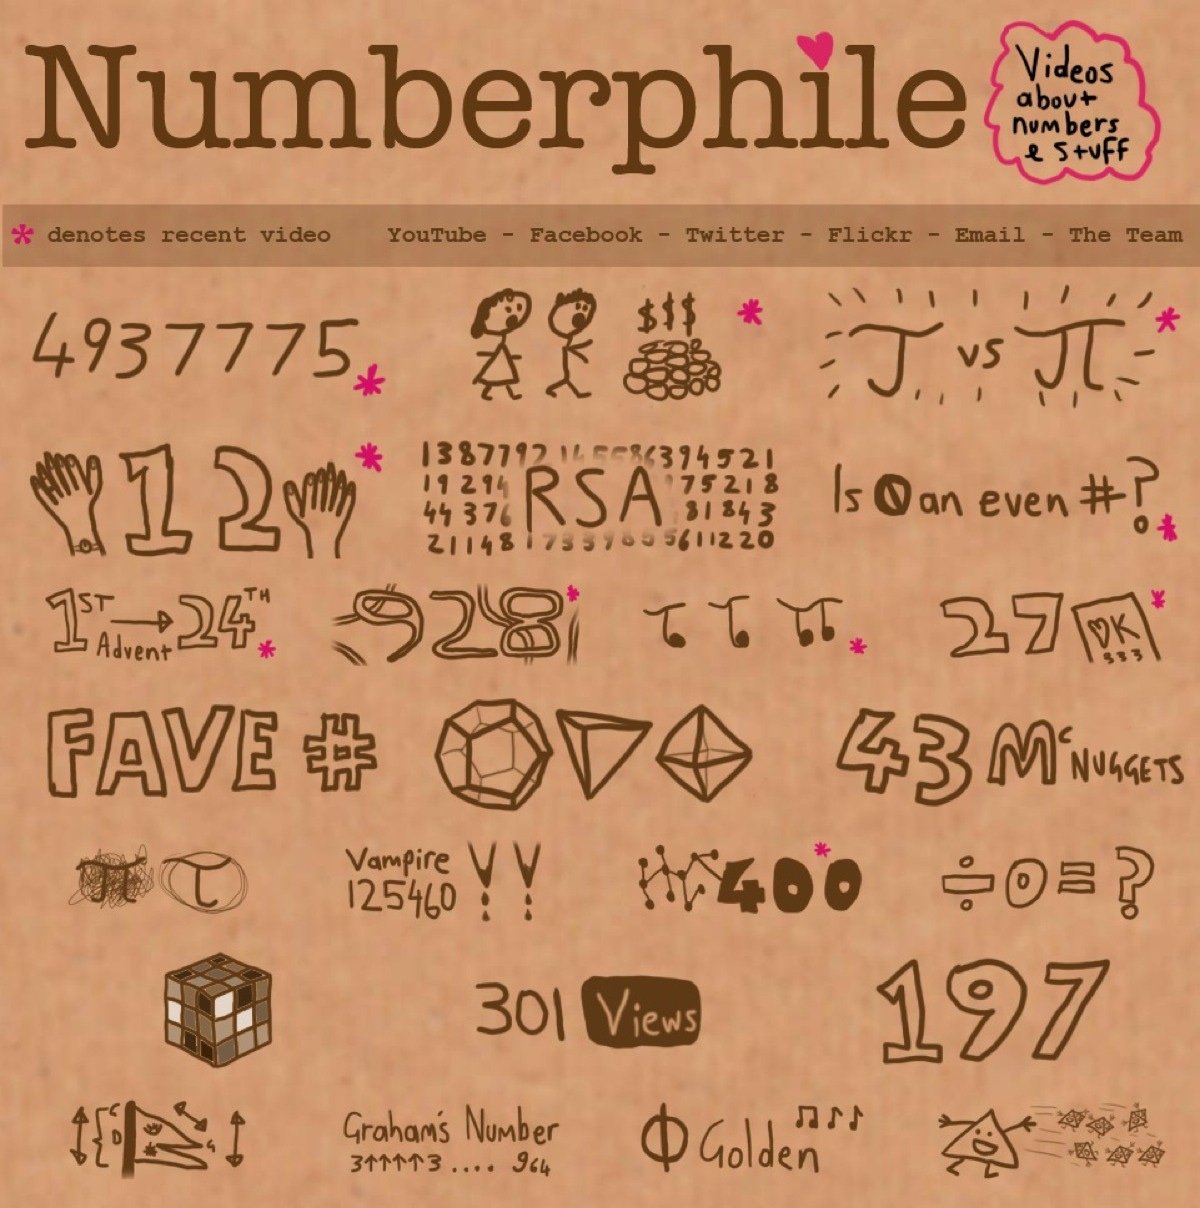 Numberphile
Videos
about
numbers
& stuff
* denotes recent video YouTube - Facebook - Twitter - Flickr - Email - The Team
4937775
$$$
τ vs π
12
1387792 145586394521
RSA
Is 0 an even #?
1ST → 24TH
Advent
928
τ τ π
27
♡K
FAVE #
43 Mc NUGGETS
π τ
Vampire
125460
400
÷0=?
301 Views
197
Graham's Number
3↑↑↑↑3 .... g64
Φ Golden